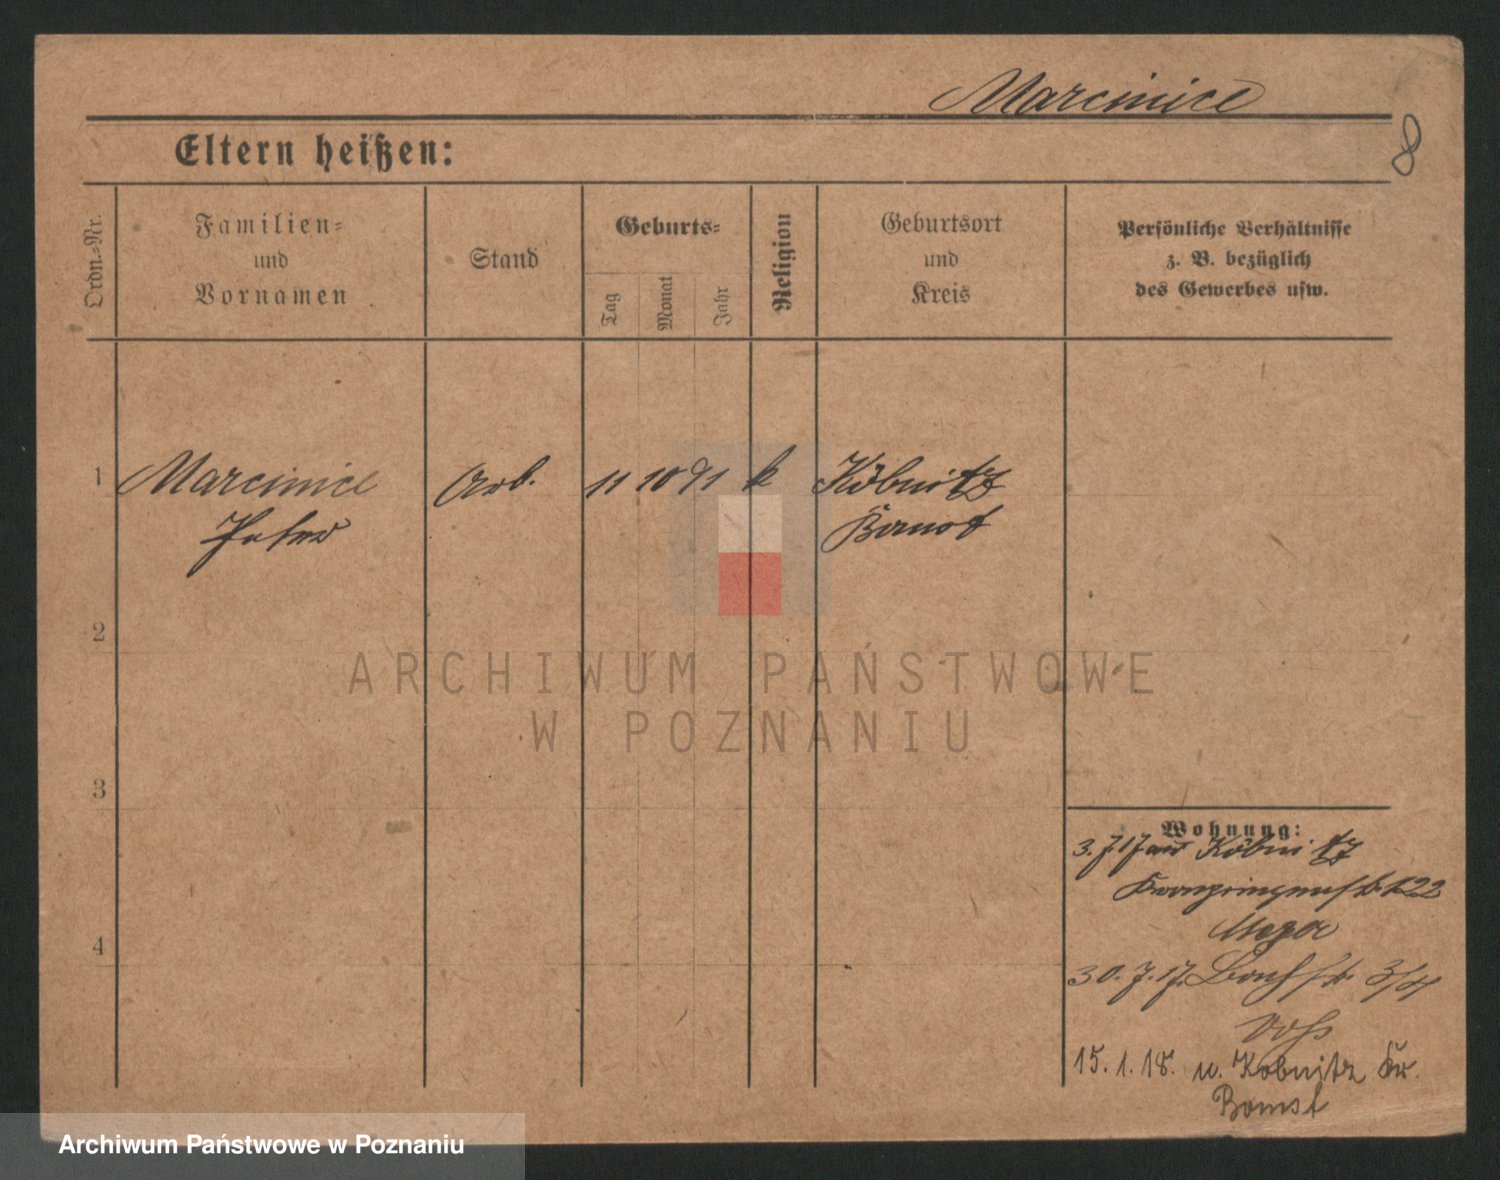 Marcinice
8
Eltern heißen:
Ordn.-Nr.
Familien-
und
Vornamen
Stand
Geburts-
Tag
Monat
Jahr
Religion
Geburtsort
und
Kreis
Persönliche Verhältnisse
z. B. bezüglich
des Gewerbes usw.
1 Marcinice Arb. 11 10 91 k Köbnitz
Peter Bomst
2
3
4
ARCHIWUM PAŃSTWOWE
W POZNANIU
Wohnung:
3.7.17 Köbnitz
Kronprinzenstr. 122
30.7.17.
Voss
15.1.18. n. Köbnitz Kr.
Bomst
Archiwum Państwowe w Poznaniu